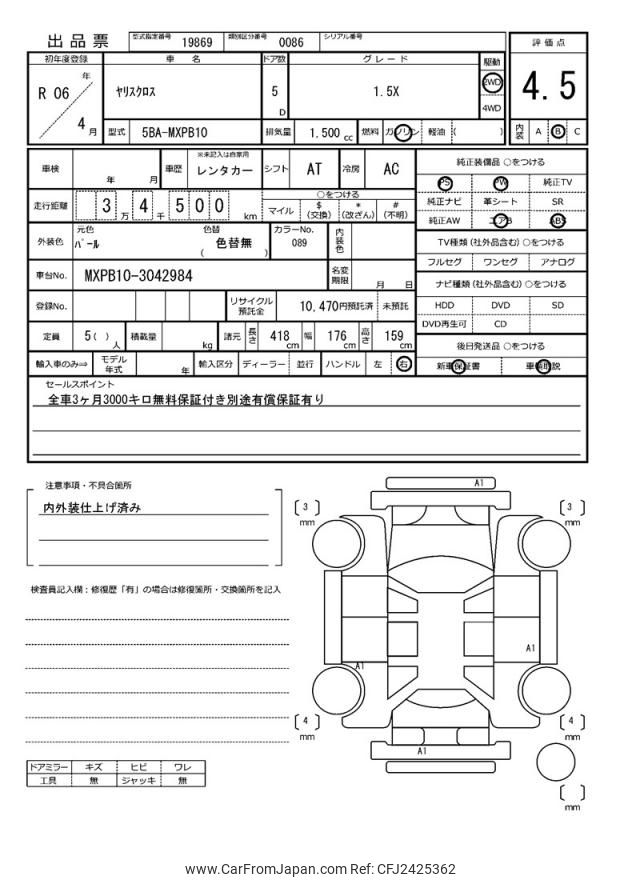 出品票 型式指定番号 19869 類別区分番号 0086 シリアル番号
評価点
4.5
内装 A B C
初年度登録 車名 ドア数 グレード 駆動
R 06 年 4 月
ヤリスクロス 5 D 1.5X 2WD 4WD
型式 5BA-MXPB10 排気量 1.500 cc 燃料 ガソリン 軽油 ( )
車検 年 月 車歴 ※未記入は自家用 レンタカー シフト AT 冷房 AC
走行距離 3 万 4 千 5 0 0 km
○をつける
マイル $(交換) *(改ざん) #(不明)
外装色 元色 パール 色替 ( 色替無 ) カラーNo. 089 内装色
車台No. MXPB10-3042984 名変期限 月 日
登録No. リサイクル預託金 10.470円預託済 未預託
定員 5( )人 積載量 kg 諸元 長さ 418 cm 幅 176 cm 高さ 159 cm
輸入車のみ⇒ モデル年式 年 輸入区分 ディーラー 並行 ハンドル 左 右
純正装備品 ○をつける
PS PW 純正TV
純正ナビ 革シート SR
純正AW エアB ABS
TV種類(社外品含む)○をつける
フルセグ ワンセグ アナログ
ナビ種類(社外品含む)○をつける
HDD DVD SD
DVD再生可 CD
後日発送品 ○をつける
新車保証書 車輌取説
セールスポイント
全車3ヶ月3000キロ無料保証付き別途有償保証有り
注意事項・不具合箇所
内外装仕上げ済み
検査員記入欄:修復歴「有」の場合は修復箇所・交換箇所を記入
ドアミラー キズ ヒビ ワレ
工具 無 ジャッキ 無
A1
[ 3 ] mm
[ 3 ] mm
A1
A1
[ 4 ] mm
[ 4 ] mm
A1
[ ] mm
www.CarFromJapan.com Ref: CFJ2425362